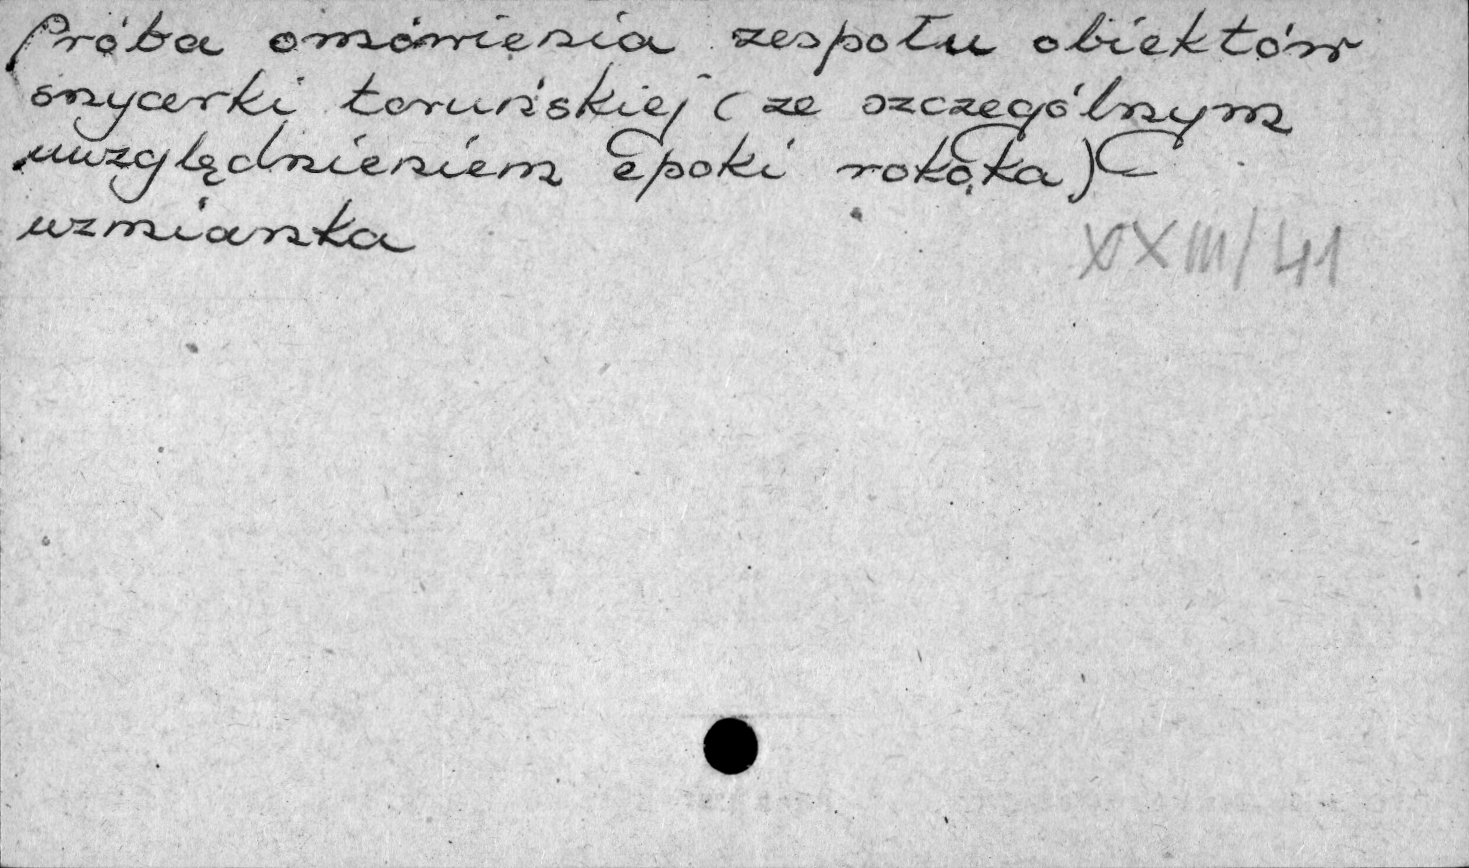 Próba omówienia zespołu obiektów
snycerki toruńskiej (ze szczególnym
uwzględnieniem epoki rokoka)
wzmianka
XXIII/41